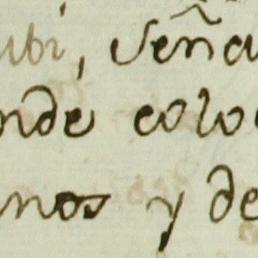 ubi, Seña
nde colo
nos y de